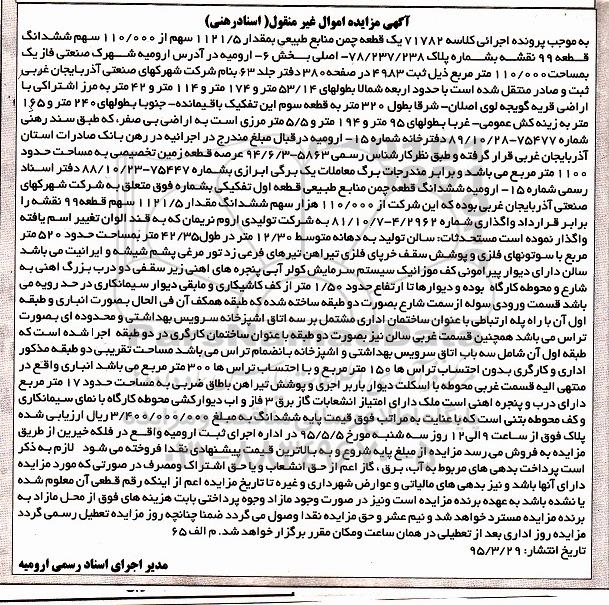 آگهی مزایده اموال غیر منقول( اسنادرهنی)
به موجب پرونده اجرائی کلاسه ۷۱۷۸۲ یک قطعه چمن منابع طبیعی بمقدار ۱۱۲۱/۵ سهم از ۱۱۰/۰۰۰ سهم ششدانگ
قطعه ۹۹ نقشه بشماره پلاک ۷۸/۲۳۷/۲۳۸- اصلی بخش ۶- ارومیه در آدرس ارومیه شهرک صنعتی فاز یک
بمساحت ۱۱۰/۰۰۰ متر مربع ذیل ثبت ۴۹۸۳ در صفحه ۳۸۰ دفتر جلد ۶۳ بنام شرکت شهرکهای صنعتی آذربایجان غربی
ثبت و صادر منتقل شده است با حدود اربعه شمالا بطولهای ۵۳/۱۴ متر و ۱۷۴ متر و ۱۱۴ متر و ۴۲ متر به مرز اشتراکی با
اراضی قریه گویجه لوی اصلان- شرقا بطول ۳۲۰ متر به قطعه سوم این تفکیک باقیمانده- جنوبا بطولهای ۲۴۰ متر و ۱۶۵
متر به زینه کش عمومی- غربا بطولهای ۹۵ متر و ۱۹۴ متر و ۵/۵ متر مرزی است به اراضی بی صفر، که طبق سند رهنی
شماره ۷۵۴۷۷-۸۱/۱۰/۲۸ دفترخانه شماره ۱۵- ارومیه در قبال مبلغ مندرج در اجرائیه در رهن بانک صادرات استان
آذربایجان غربی قرار گرفته و طبق نظر کارشناس رسمی ۵۸۶۳-۹۴/۶/۳ عرصه قطعه زمین تخصیصی به مساحت حدود
۱۱۰۰ متر مربع می باشد و برابر مندرجات برگ معاملات یک برگی ابرازی بشماره ۷۵۴۴۷-۸۸/۱۰/۲۳ دفتر اسناد
رسمی شماره ۱۵- ارومیه ششدانگ قطعه چمن منابع طبیعی قطعه اول تفکیکی بشماره فوق متعلق به شرکت شهرکهای
صنعتی آذربایجان غربی بوده که این شرکت از ۱۱۰/۰۰۰ هزار سهم ششدانگ مقدار ۱۱۲۱/۵ سهم قطعه ۹۹ نقشه را
برابر قرارداد واگذاری شماره ۴/۲۹۶۲-۸۱/۱۰/۷ به شرکت تولیدی اروم نریمان که به قند الوان تغییر اسم یافته
واگذار نموده است مستحدثات: سالن تولید به دهانه متوسط ۱۲/۳۰ متر در طول ۴۲/۳۵ متر بمساحت حدود ۵۲۰ متر
مربع با ستونهای فلزی و پوشش سقف خرپای فلزی تیرآهن تیرهای فرعی زد تور مرغی پشم شیشه و ایرانیت می باشد
سالن دارای دیوار پیرامونی کف موزائیک سیستم سرمایش کولر آبی پنجره های اهنی زیر سقفی دو درب بزرگ اهنی به
شارع و محوطه کارگاه بوده و دیوارها تا ارتفاع حدود ۱/۵۰ متر از کف کاشیکاری و مابقی دیوار سیمانکاری در حد رویه می
باشد قسمت ورودی سوله از سمت شارع بصورت دو طبقه ساخته شده که طبقه همکف آن فی الحال بصورت انباری و طبقه
اول آن با راه پله ارتباطی با عنوان ساختمان اداری مشتمل بر سه اتاق اشپزخانه سرویس بهداشتی و محدوده ای بصورت
تراس می باشد همچنین قسمت غربی سالن نیز بصورت دو طبقه با عنوان ساختمان کارگری در دو طبقه اجرا شده است که
طبقه اول آن شامل سه باب اتاق سرویس بهداشتی و اشپزخانه بانضمام تراس می باشد مساحت تقریبی دو طبقه مذکور
اداری و کارگری بدون احتساب تراس ها ۱۵۰ متر مربع و با احتساب تراس ها ۳۰۰ متر مربع می باشد انباری واقع در
منتهی الیه قسمت غربی محوطه با اسکلت دیوار باربر آجری و پوشش تیرآهن باطاق ضربی به مساحت حدود ۱۷ متر مربع
دارای درب و پنجره اهنی است ملک دارای امتیاز انشعابات گاز برق ۳ فاز و اب دیوارکشی محوطه کارگاه با نمای سیمانکاری
و کف محوطه بتنی است که با عنایت به مراتب فوق قیمت پایه ششدانگ به مبلغ ۳/۴۰۰/۰۰۰/۰۰۰ ریال ارزیابی شده
پلاک فوق از ساعت ۹ الی ۱۲ روز سه شنبه مورخ ۹۵/۵/۵ در اداره اجرای ثبت ارومیه واقع در فلکه خیرین از طریق
مزایده به فروش می رسد مزایده از مبلغ پایه شروع و به بالاترین قیمت پیشنهادی نقدا فروخته می شود لازم به ذکر
است پرداخت بدهی های مربوط به آب، برق، گاز اعم از حق انشعاب و یا حق اشتراک ومصرف در صورتی که مورد مزایده
دارای آنها باشد و نیز بدهی های مالیاتی و عوارض شهرداری و غیره تا تاریخ مزایده اعم از اینکه رقم قطعی آن معلوم شده
یا نشده باشد به عهده برنده مزایده است ونیز در صورت وجود مازاد وجوه پرداختی بابت هزینه های فوق از محل مازاد به
برنده مزایده مسترد خواهد شد و نیم عشر و حق مزایده نقدا وصول می گردد ضمنا چنانچه روز مزایده تعطیل رسمی گردد
مزایده روز اداری بعد از تعطیلی در همان ساعت ومکان مقرر برگزار خواهد شد. م الف ۶۵
تاریخ انتشار: ۹۵/۳/۲۹
مدیر اجرای اسناد رسمی ارومیه